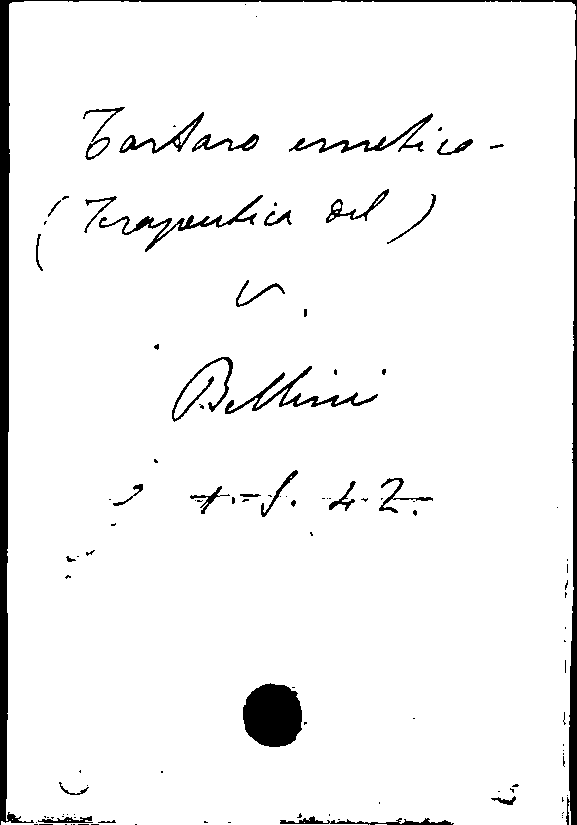 Tartaro emetico -
(Terapeutica del)
V.
Bellini